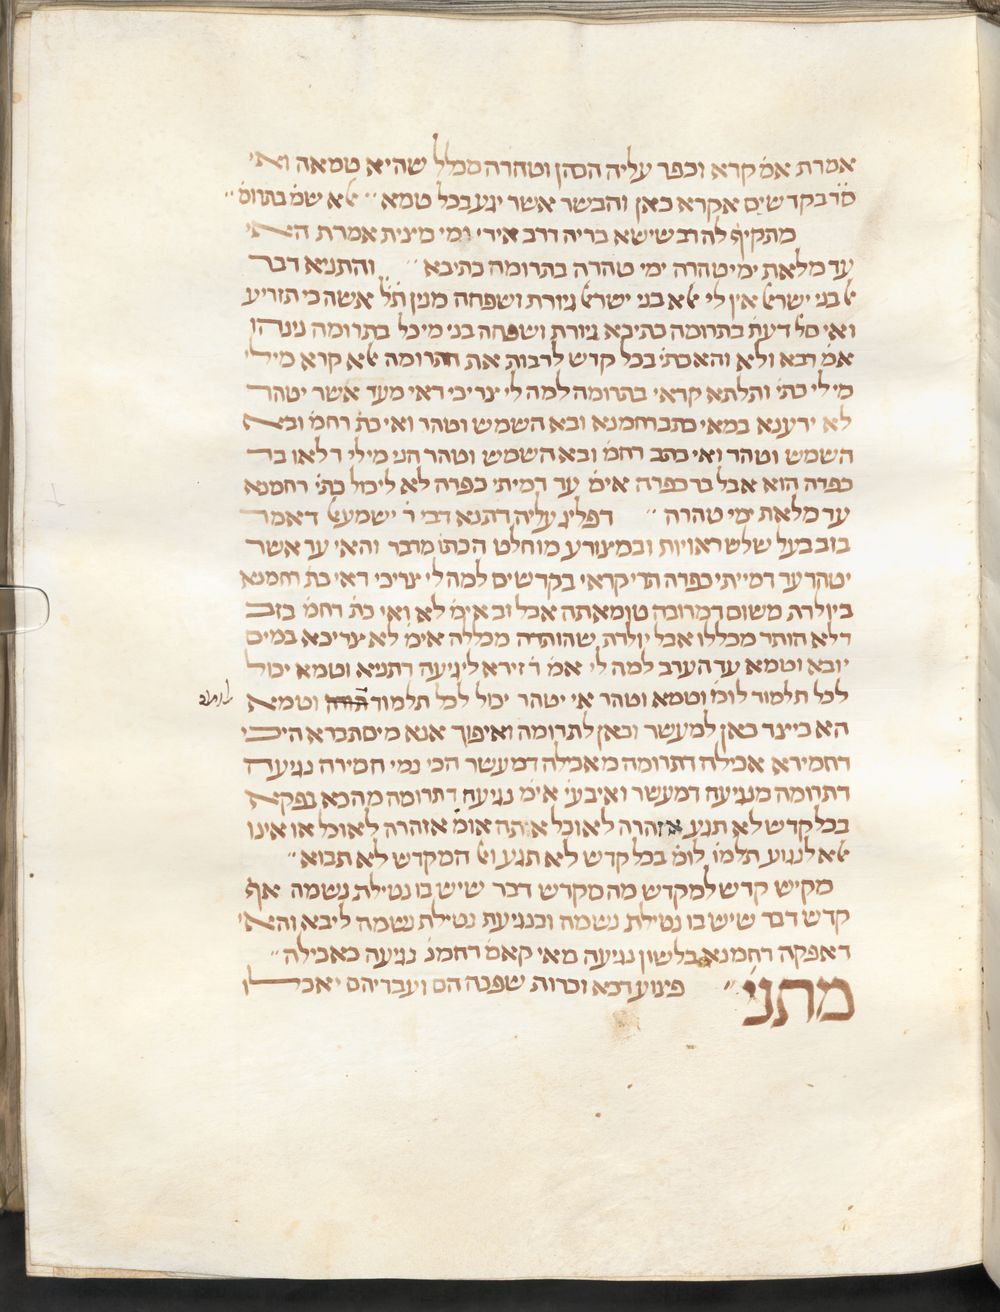 אמרת אמ׳ קרא וכפר עליה הכהן וטהרה מכלל שהיא טמאה ואי
ס׳׳ד בקדשים אקרא כאן והבשר אשר יגע בכל טמא ״ אלא שמ׳ בתרומ׳ ״
מתקיף לה רב שישא בריה דרב אידי ומי מצית אמרת הא
עד מלאת ימי טהרה ימי טהרה בתרומה כתיבא ״ והתניא דבר
אל בני ישראל אין לי אלא בני ישראל גיורת ושפחה מנין ת׳׳ל אשה כי תזריע
ואי סל׳ דעת׳ בתרומה כתיבא גיורת ושפחה בני מיכל בתרומה נינהו
אמ׳ רבא ולא והא כתי׳ בכל קדש לרבות את התרומה אלא קרא מילי
מילי כתי׳ ותלתא קראי בתרומה למה לי צריכי דאי מעד אשר יטהר
לא ידענא במאי כתב רחמנא ובא השמש וטהר ואי כת׳ רחמ׳ ובא
השמש וטהר ואי כתב רחמ׳ ובא השמש וטהר הני מילי דלאו בר
כפרה הוא אבל בר כפרה אימ׳ עד דמיתי כפרה לא ליכול כתי׳ רחמנא
עד מלאת ימי טהרה ״ דפליג עליה דתנא דבי ר׳ ישמעאל דאמר
בזב בעל שלש ראויות ובמצורע מוחלט הכתו׳ מדבר והאי עד אשר
יטהר עד דמייתי כפרה תרי קראי בקדשים למה לי צריכי דאי כת׳ רחמנא
ביולדת משום דמרובה טומאתה אבל זב אימ׳ לא ואי כת׳ רחמ׳ בזב
דלא הותר מכללו אבל יולדת שהותרה מכללה אימ׳ לא צריכא במים
יובא וטמא עד הערב למה לי אמ׳ ר׳ זירא לנגיעה דתניא וטמא יכול
לכל תלמוד לומ׳ וטמא וטהר אי יטהר יכול לכל תלמוד וטמא
הא כיצד כאן למעשר וכאן לתרומה ואיפוך אנא מיסתברא היכי
דחמירא אכילה דתרומה מאכילה דמעשר הכי נמי חמירה נגיעה
דתרומה מנגיעה דמעשר ואיבעי׳ אימ׳ נגיעה דתרומה מהכא נפקא
בכל קדש לא תגע אזהרה לאוכל אתה אומ׳ אזהרה לאוכל או אינו
אלא לנוגע תלמו׳ לומ׳ בכל קדש לא תגע ואל המקדש לא תבוא ״
מקיש קדש למקדש מה מקדש דבר שיש בו נטילת נשמה אף
קדש דבר שיש בו נטילת נשמה ובנגיעת נטילת נשמה ליכא והאי
דאפקה רחמנא בלשון נגיעה מאי קאמ׳ רחמנ׳ נגיעה כאכילה ״
מתני׳ ״ פצוע דכא וכרות שפכה הם ועבדיהם יאכלו